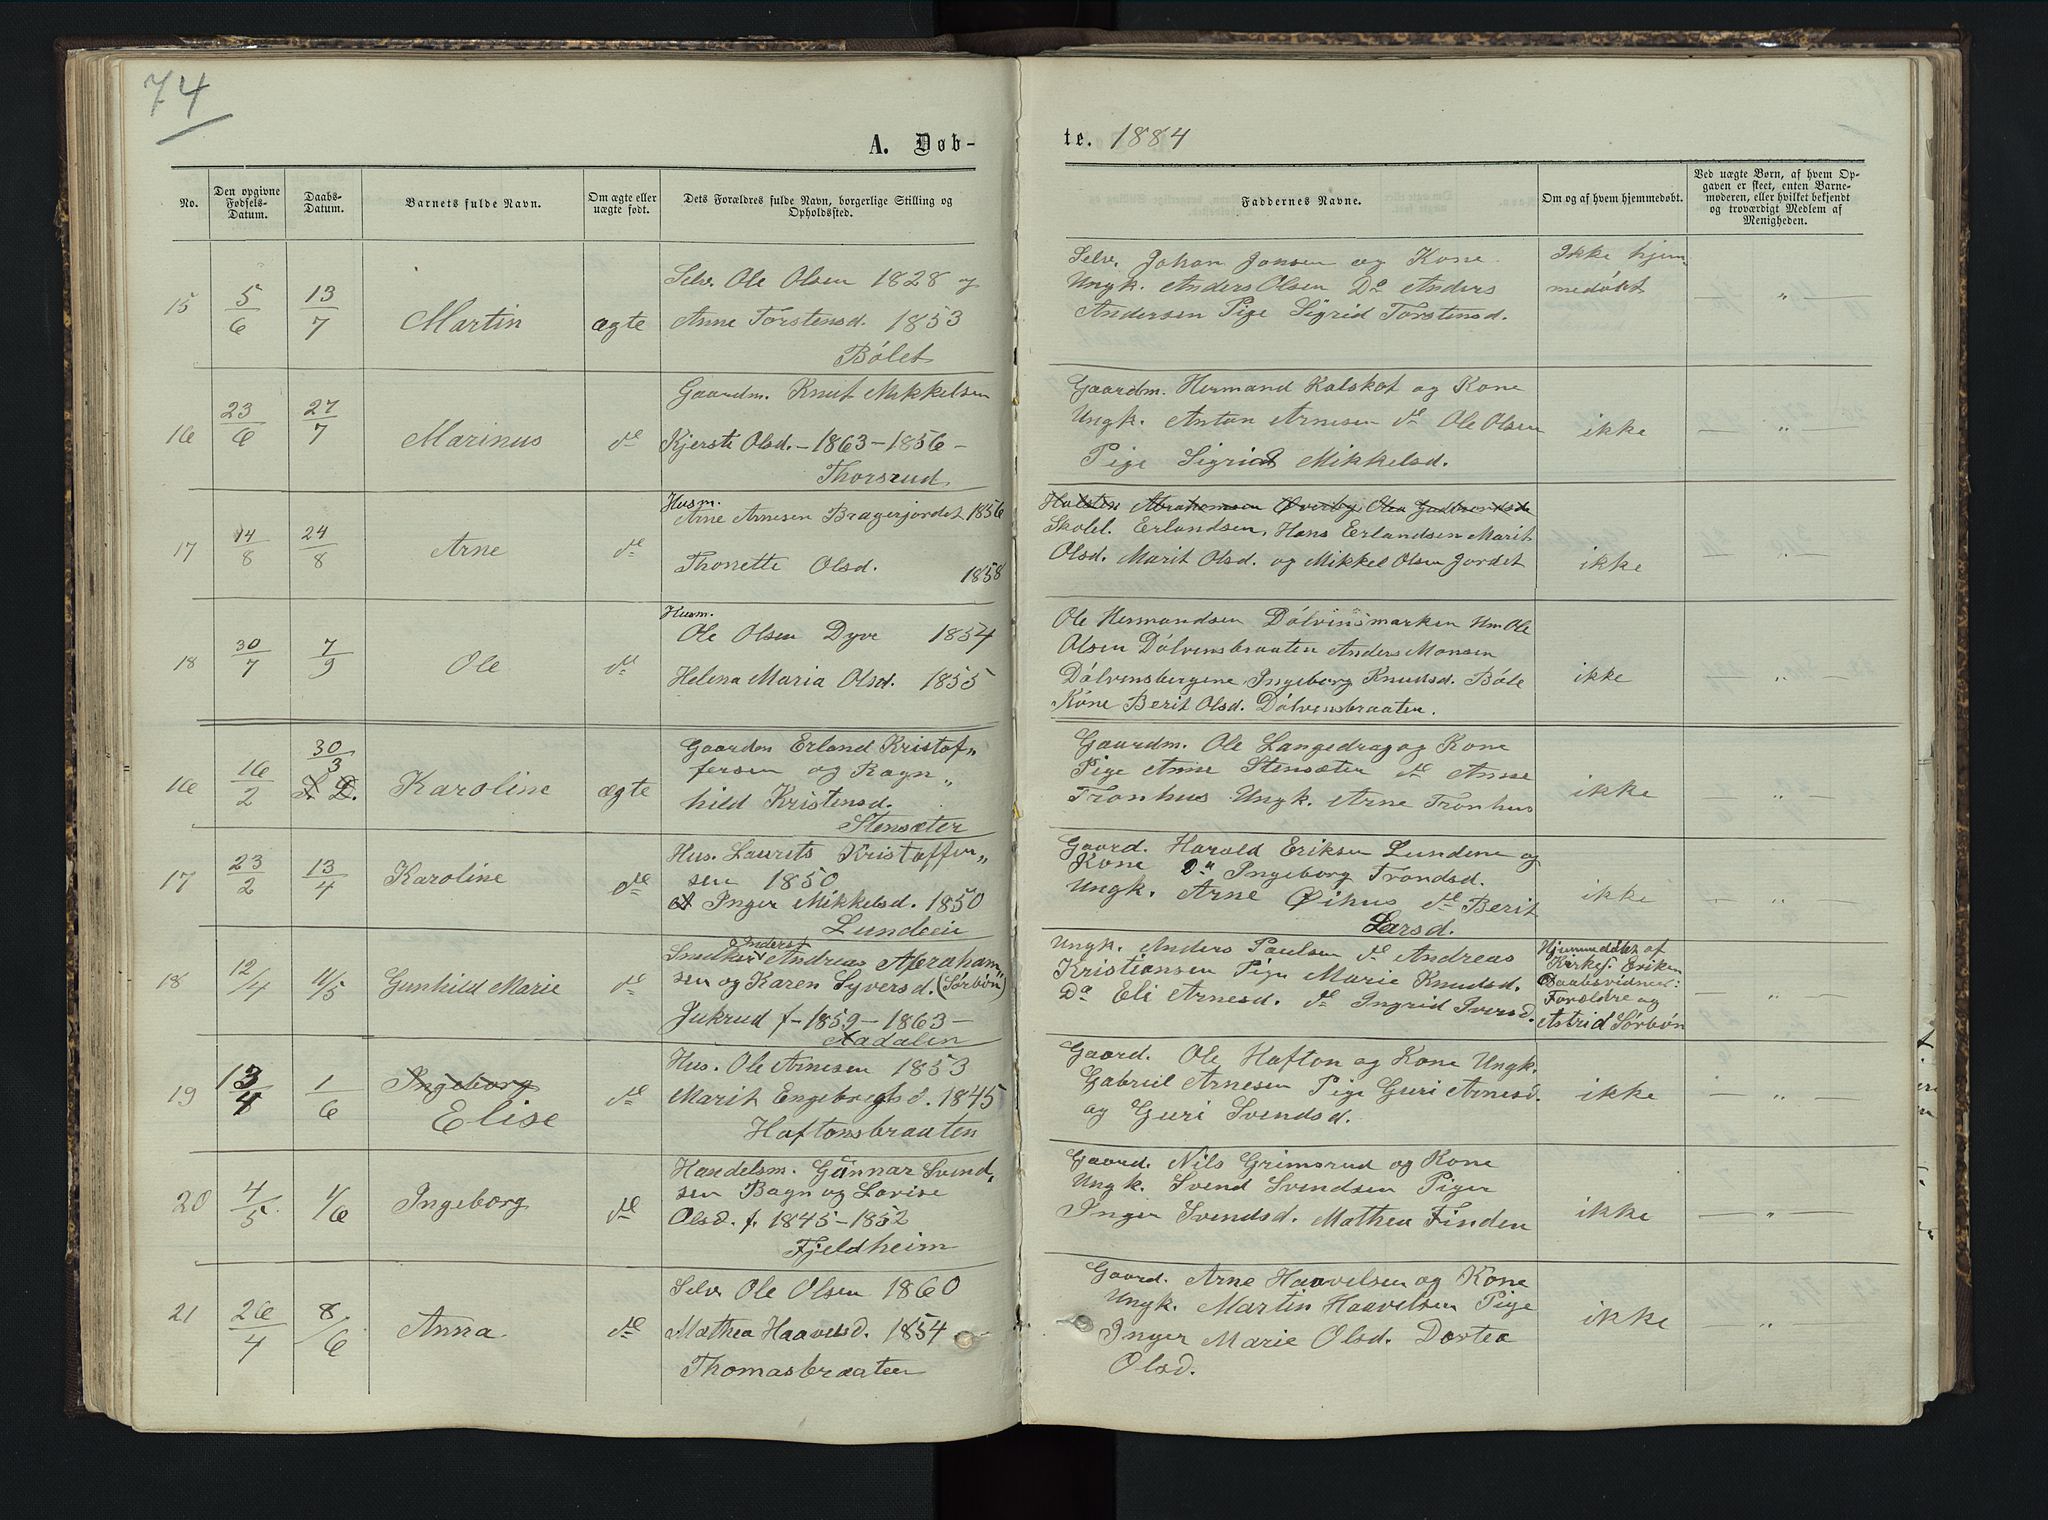 74
A. Døb-
te. 1884
No.
Den opgivne Fødsels-Datum.
Daabs-Datum.
Barnets fulde Navn.
Om ægte eller uægte født.
Dets Forældres fulde Navn, borgerlige Stilling og Opholdssted.
Faddernes Navne.
Om og af hvem hjemmedøbt.
Ved uægte Børn, af hvem Op-
gaven er skeet, enten Barne-
moderen, eller hvilket bekjendt
og troværdigt Medlem af
Menigheden.
15
5/6
13/7
Martin
ægte
Selv. Ole Olsen 1828 og
Anne Torstensd. 1853
Bølet
Selv. Johan Jonsen og Kone
Ungk. Anders Olsen Do Anders
Andersen Pige Sigrid Torstensd.
Ikke hjem-
medøbt
— " —
16
23/6
27/7
Marinus
do
Gaardm. Knut Mikkelsen
Kjersti Olsd. - 1863 - 1856 -
Thorsrud
Gaardm. Hermand Kalskot og Kone
Ungk. Anton Arnesen do Ole Olsen
Pige Sigrid Mikkelsd.
ikke
— " —
17
14/8
24/8
Arne
do
Husm.
Arne Arnesen Bragerjordet 1856
Thonette Olsd. 1858
Halsten Abrahamsen Øverby Olea Gudbrandsda
Skolel. Erlandsen, Hans Erlandsen Marit
Olsd. Marit Olsd. og Mikkel Olsen Jordet
ikke
— " —
18
30/7
7/9
Ole
do
Husm.
Ole Olsen Dyve 1854
Helena Maria Olsd. 1855
Ole Hermandsen Dølvinsmarken Um Ole
Olsen Dølvensbraaten Anders Monsen
Dølvensbergene Ingeborg Knudsd. Bøle
Kone Berit Olsd. Dølvensbraaten.
ikke
— " —
16
16/2
30/3
S. D.
Karoline
ægte
Gaardm Erland Kristof„
fersen og Ragn„
hild Kristensd.
Stensæter
Gaardm. Ole Langedrag og Kone
Pige Anne Stensæter do Anne
Tronhus Ungk. Arne Tronhus
ikke
— " —
17
23/2
13/4
Karoline
do
Hus. Laurits Kristoffer„
sen 1850
Inger Mikkelsd. 1850
Lundeie
Gaard. Harald Eriksen Lundene og
Kone Do Ingeborg Trondsd.
Ungk. Arne Øihus do Berit
Larsd.
ikke
— " —
18
12/4
11/5
Gunhild Marie
do
Inderst
Snedker Andreas Abraham„
sen og Karen Syversd. (Sørbøn)
Jukrud f- 1859 - 1863 -
Aadalen
Ungk. Anders Paulsen do Andreas
Kristiansen Pige Marie Knudsd.
Do Eli Arnesd. do Ingrid Iversd.
Hjemmedøbt af
Kirkes. Eriksen
Daabsvidner:
Forældre og
Astrid Sørbøn
— " —
19
13/4
1/6
Ingeborg
Elise
do
Hus. Ole Arnesen 1853
Marit Engebregtsd. 1845
Haftonsbraaten
Gaard. Ole Hafton og Kone Ungk.
Gabriel Arnesen Pige Guri Arnesd.
og Guri Svendsd.
ikke
— " —
20
4/5
1/6
Ingeborg
do
Handelsm. Gunnar Svend„
sen Bagn og Lovise
Olsd. f. 1845 - 1852
Fjeldheim
Gaard. Nils Grimsrud og Kone
Ungk. Svend Svendsen Piger
Inger Svendsd. Mathea Finden
ikke
— " —
21
26/4
8/6
Anna
do
Selv Ole Olsen 1860
Mathea Haavelsd. 1854
Thomasbraaten
Gaard. Arne Haavelsen og Kone
Ungk. Martin Haavelsen Pige
Inger Marie Olsd. Dortea
Olsd.
ikke
— " —